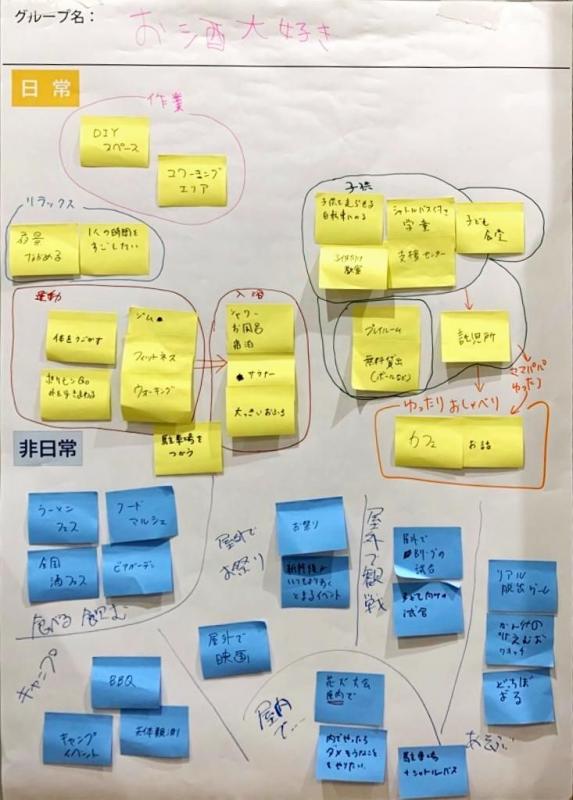 グループ名：
お酒大好き
日常
作業
DIY
スペース
コワーキング
エリア
リラックス
夜景
ながめる
1人の時間を
すごしたい
子供
子供を走らせる
自転車にのる
シャトルバスで行く
学童
子ども
食堂
教室
支援センター
運動
体をうごかす
ポケモンGo
ジム
フィットネス
ウォーキング
入浴
シャワー
お風呂
宿泊
サウナー
大っきいおふろ
駐車場を
つかう
プレイルーム
無料貸出
(ボールなど)
託児所
ママパパ
ゆったり
ゆったりおしゃべり
カフェ
お話
非日常
ラーメン
フェス
フード
マルシェ
全国
酒フェス
ビアガーデン
食べる 飲む
屋外で
お祭り
お祭り
新幹線が
とまるイベント
屋外で観戦
屋外で
Bリーグの
試合
試合
リアル
脱出ゲーム
どろぼ
キャンプ
BBQ
キャンプ
イベント
天体観測
屋外で
映画
屋内
で…
花火大会
屋内で
内でやったら
ダメそうなこと
をやりたい
駐車場
+シャトルバス
あそぶ